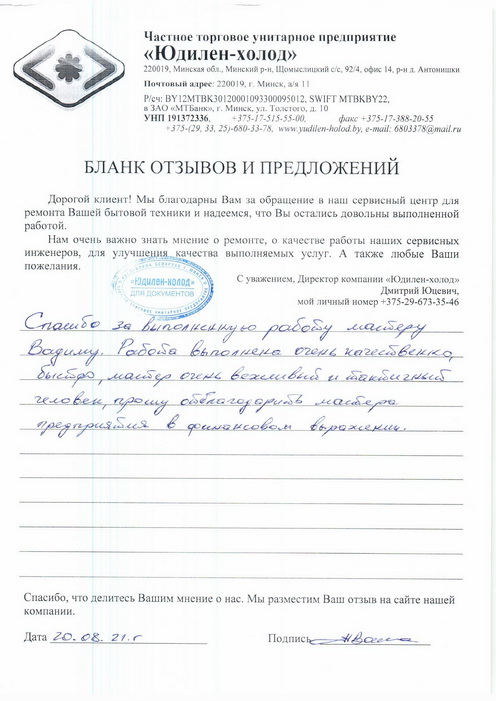 Частное торговое унитарное предприятие
«Юдилен-холод»
220019, Минская обл., Минский р-н, Щомыслицкий с/с, 92/4, офис 14, р-н д. Антонишки
Почтовый адрес: 220019, г. Минск, а/я 11
Р/сч: BY12MTBK30120001093300095012, SWIFT MTBKBY22,
в ЗАО «МТБанк», г. Минск, ул. Толстого, д. 10
УНП 191372336, +375-17-515-55-00, факс +375-17-388-20-55
+375-(29, 33, 25)-680-33-78, www.yudilen-holod.by, e-mail: 6803378@mail.ru
БЛАНК ОТЗЫВОВ И ПРЕДЛОЖЕНИЙ
Дорогой клиент! Мы благодарны Вам за обращение в наш сервисный центр для
ремонта Вашей бытовой техники и надеемся, что Вы остались довольны выполненной
работой.
Нам очень важно знать мнение о ремонте, о качестве работы наших сервисных
инженеров, для улучшения качества выполняемых услуг. А также любые Ваши
пожелания.
«Юдилен-холод»
ДЛЯ ДОКУМЕНТОВ
С уважением, Директор компании «Юдилен-холод»
Дмитрий Юцевич,
мой личный номер +375-29-673-35-46
Спасибо за выполненную работу мастеру
Вадиму. Работа выполнена очень качественно,
быстро, мастер очень вежливый и тактичный
человек, прошу отблагодарить мастера
предприятия в финансовом выражении.
Спасибо, что делитесь Вашим мнение о нас. Мы разместим Ваш отзыв на сайте нашей
компании.
Дата 20.08.21.г Подпись